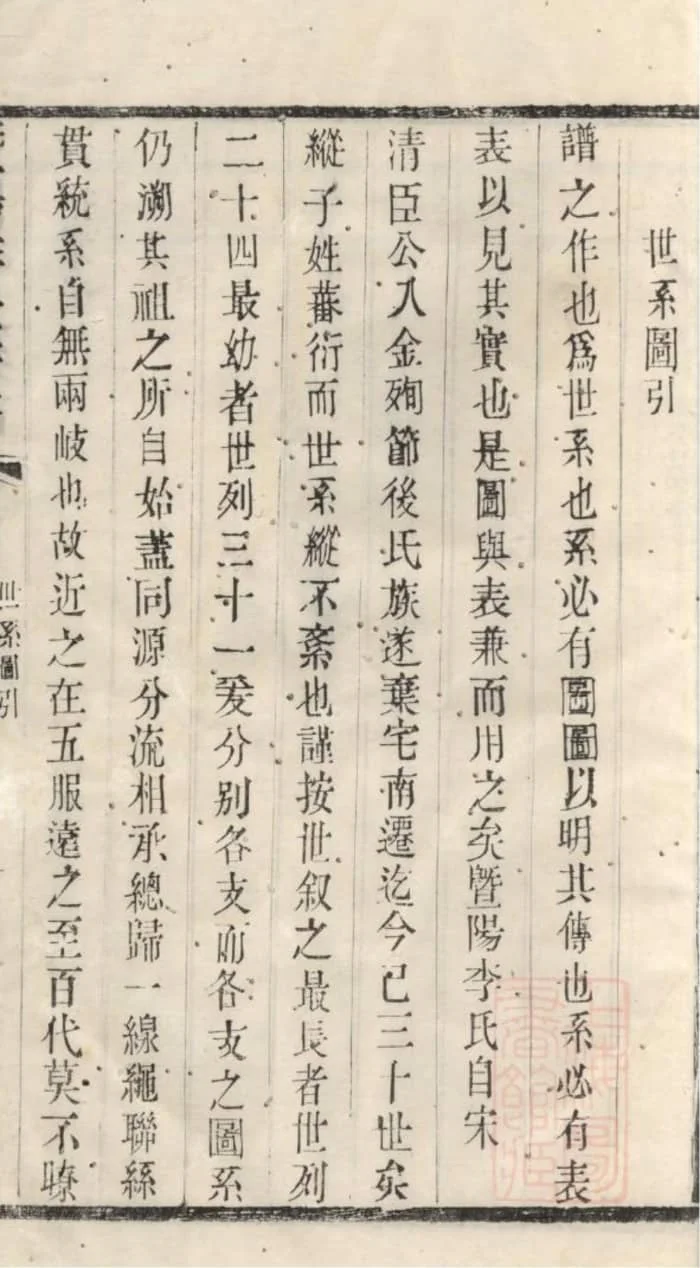 世系圖引
譜之作也爲世系也系必有圖圖以明其傳也系必有表
表以見其實也是圖與表兼而用之矣暨陽李氏自宋
清臣公入金殉節後氏族遂棄宅南遷迄今已三十世矣
縱子姓蕃衍而世系縱不紊也謹按世叙之最長者世列
二十四最幼者世列三十一爰分别各支而各支之圖系
仍溯其祖之所自始蓋同源分流相承總歸一線繩聯絲
貫統系自無兩岐也故近之在五服遠之至百代莫不暸
世系圖引